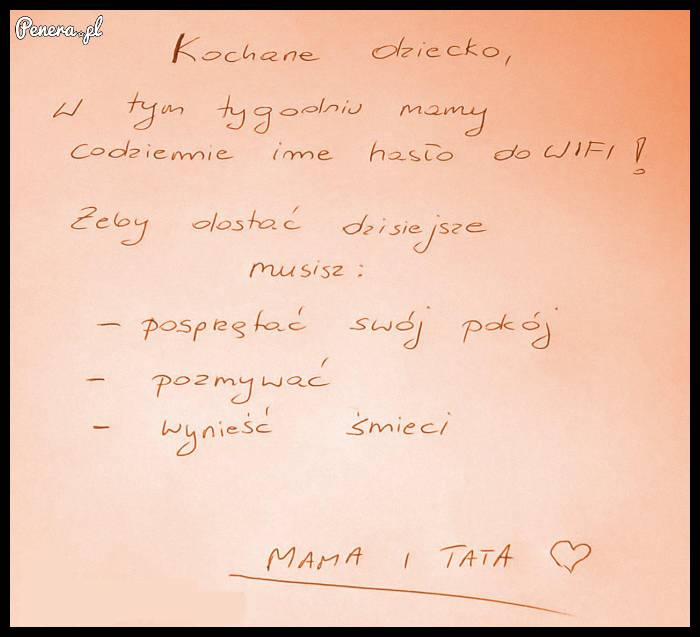 Penera.pl
Kochane dziecko,
W tym tygodniu mamy
codziennie inne hasło do WIFI!
Żeby dostać dzisiejsze
musisz:
- posprzątać swój pokój
- pozmywać
- wynieść śmieci
MAMA I TATA ♡